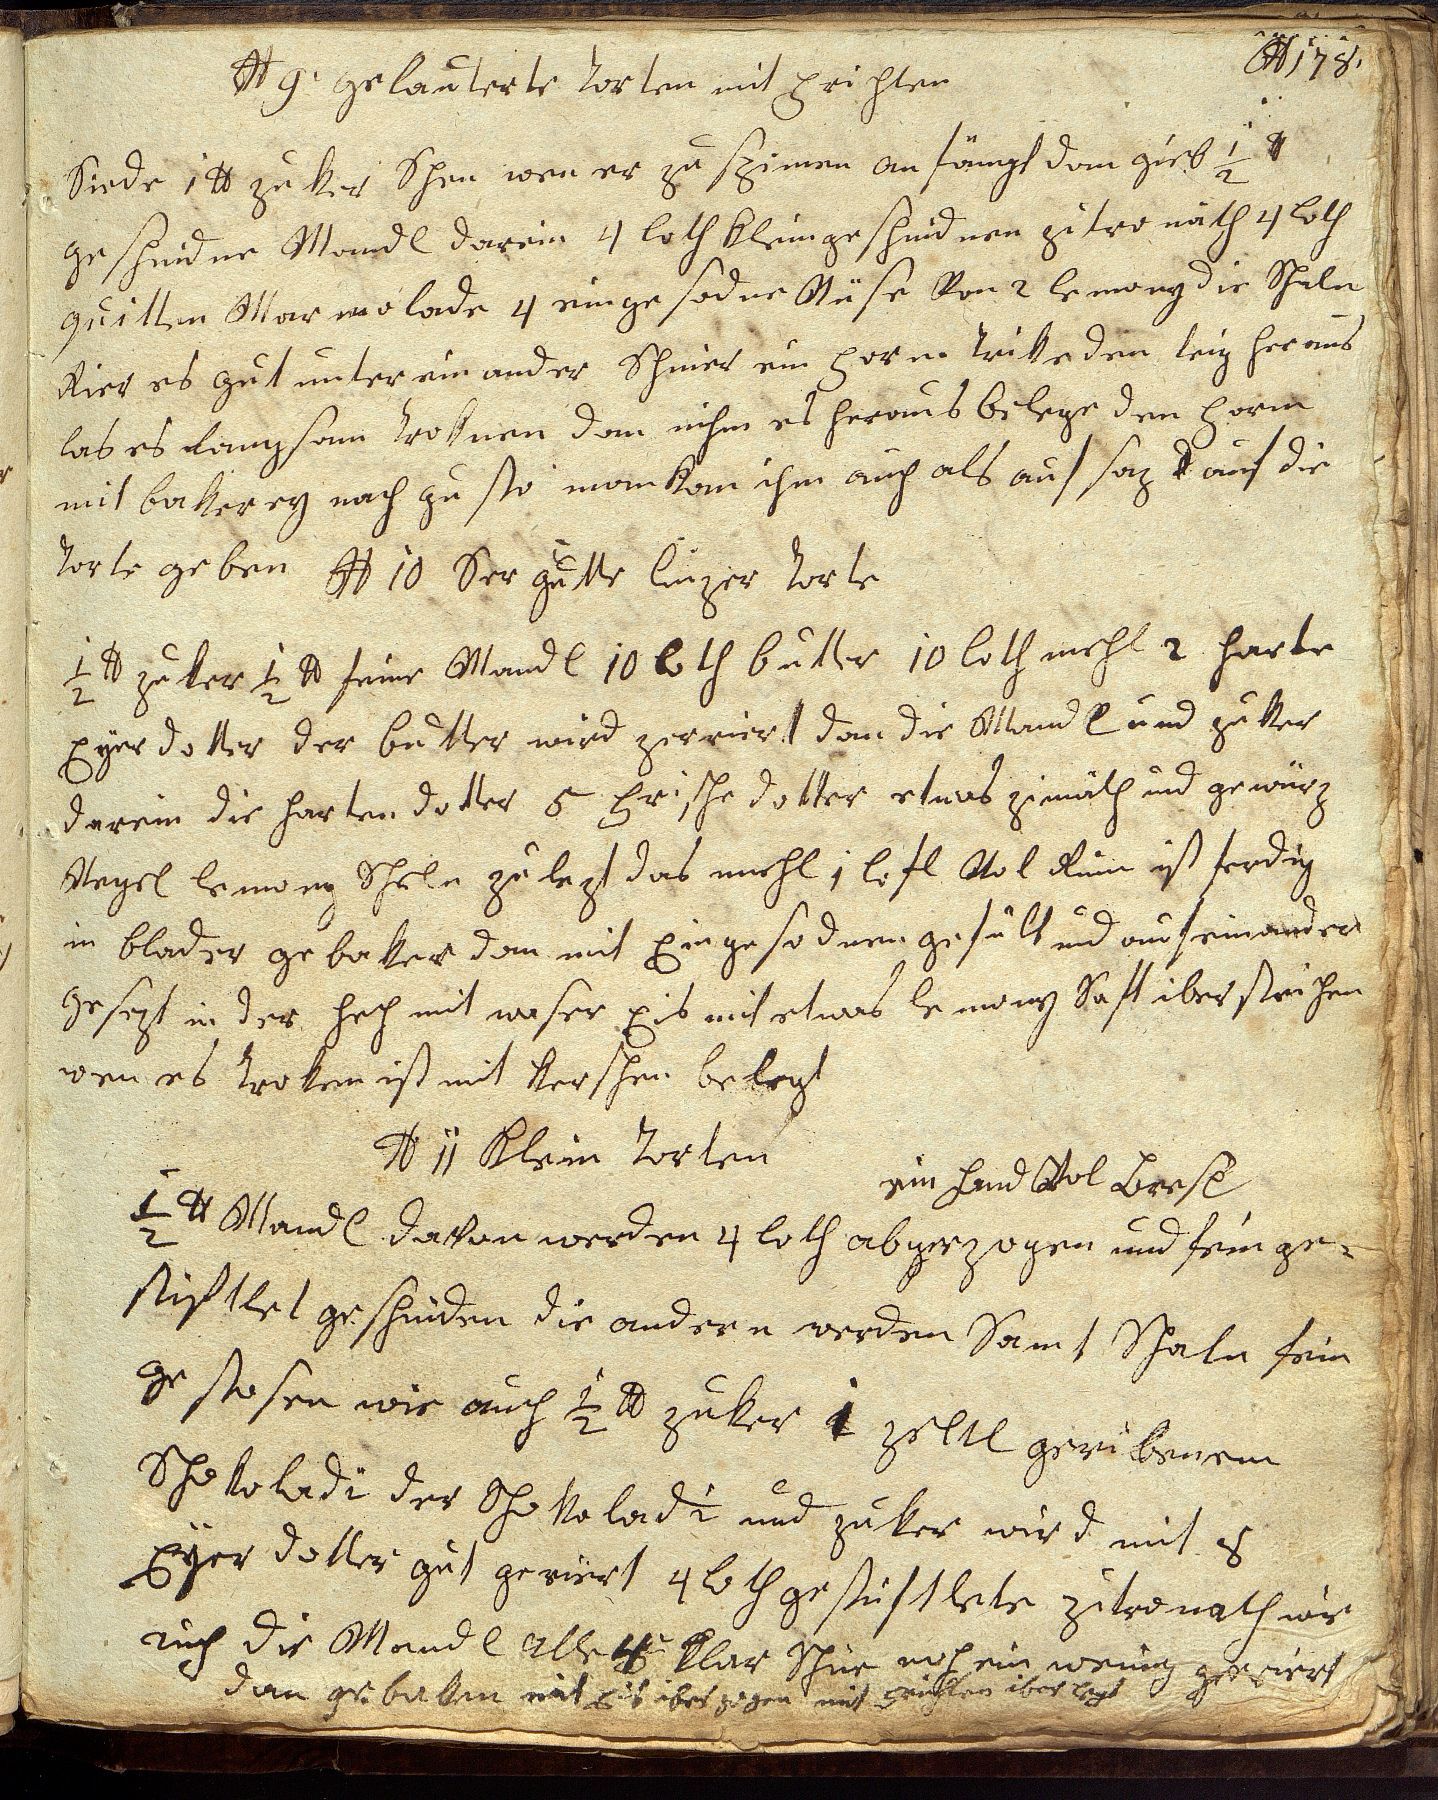 # 178.
# 9. gelauterte Torten mit Frichten
Siede 1 ℔ zuker Schen wen er zu spinen anfängt dan gieb ½ ℔
geschnidne Mandl darein 4 loth kleingeschnidnen zitronath 4 loth
quitten Marmolade 4 eingesodne Nüse Von 2 lemony die Schaln
Rier es gut untereinander Schmier ein Form Trike den teig heraus
las es langsam Troknen dan nihm es heraus belege den Form
mit bakerey nach gusto man kan ihm auch als aufsaz auf die
Torte geben # 10 Ser gutte linzer Torte
½ ℔ zuker ½ ℔ feine Mandl 10 loth butter 10 loth mehl 2 harte
Eyerdotter der butter wird zerriert dan die Mandl und zuker
darein die harten dotter 5 Frische dotter etwas zimäth und gewürz
Negel lemony Schaln zu lezt das mehl 1 lefl Vol Rum ist ferdig
in blader gebaken dan mit Eingesodnen gefült und aufeinander
gesezt in der heh mit waser Eis mit etwas lemony Saft iberstrichen
wen es Troken ist mit kerschen belegt
# 11 Klein Torten
ein hand Vol Bresl
½ ℔ Mandl davon werden 4 loth abgezogen und fein ge-
stiftlet geschniden die andern werden Samt Schaln fein
gestosen wie auch ½ ℔ zuker 1 zeltl geribenem
Schokoladi der Schokoladi und zuker wird mit 8
Eyer dotter gut geriert 4 loth gestiftlete zitronath wie
auch die Mandl alle klar Schne noch ein wenig geriert
dan gebaken mit Eis iberzogen mit Frichten iberlegt